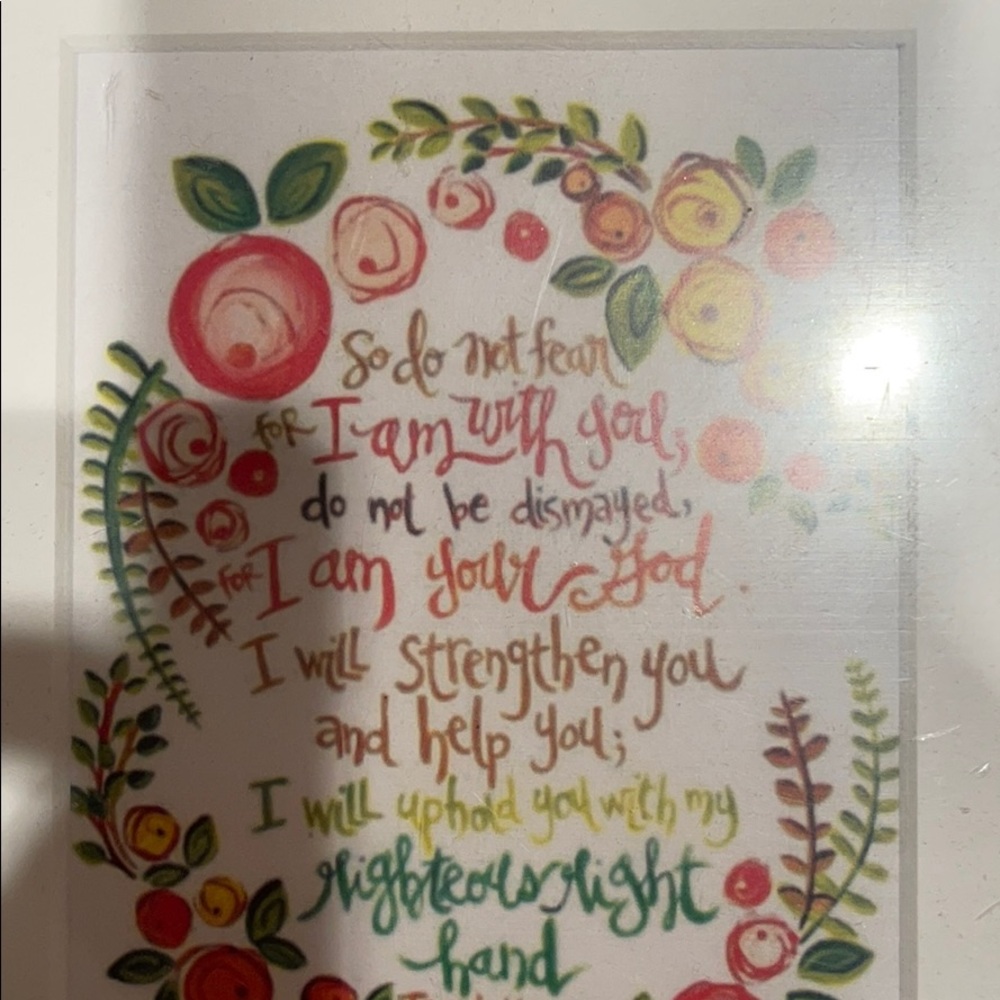 So do not fear
FOR I am with you;
do not be dismayed,
FOR I am your God.
I will strengthen you
and help you;
I will uphold you with my
righteous right
hand